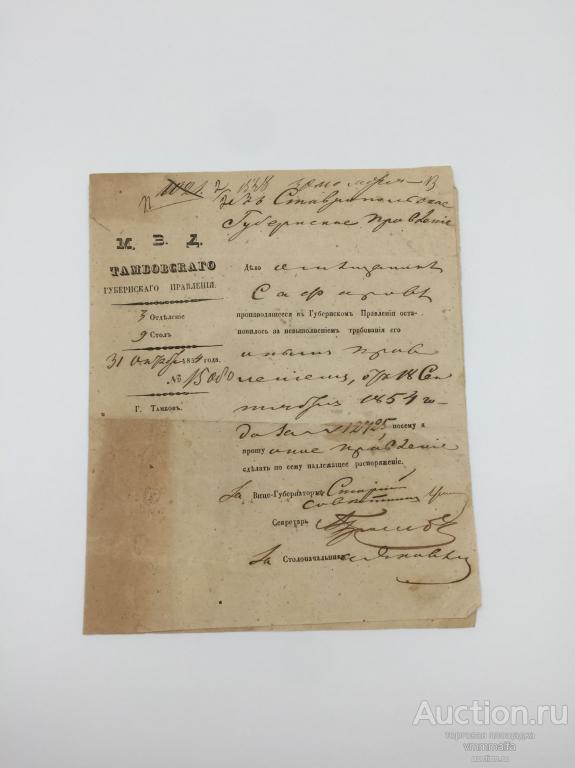 въ Ставропольское
Губернское Правленіе
М. В. Д.
ТАМБОВСКАГО
ГУБЕРНСКАГО ПРАВЛЕНІЯ.
3 Отдѣленіе
9 Столъ
31 Октября 1854 года.
№ 15080
Г. Тамбовъ.
Дѣло о мѣщанинѣ
производящееся въ Губернскомъ Правленіи оста-
новилось за невыполненіемъ требованія его
онымъ Прав
леніемъ, отъ 18 Сен
тября 1854 го-
да за № 12725 посему и
прошу оное Правленіе
сдѣлать по сему надлежащее распоряженіе.
За Вице-Губернатора, Старшій
Совѣтникъ
Секретарь
За Столоначальника
Auction.ru
торговая площадка
vmmmaifa
auction.ru